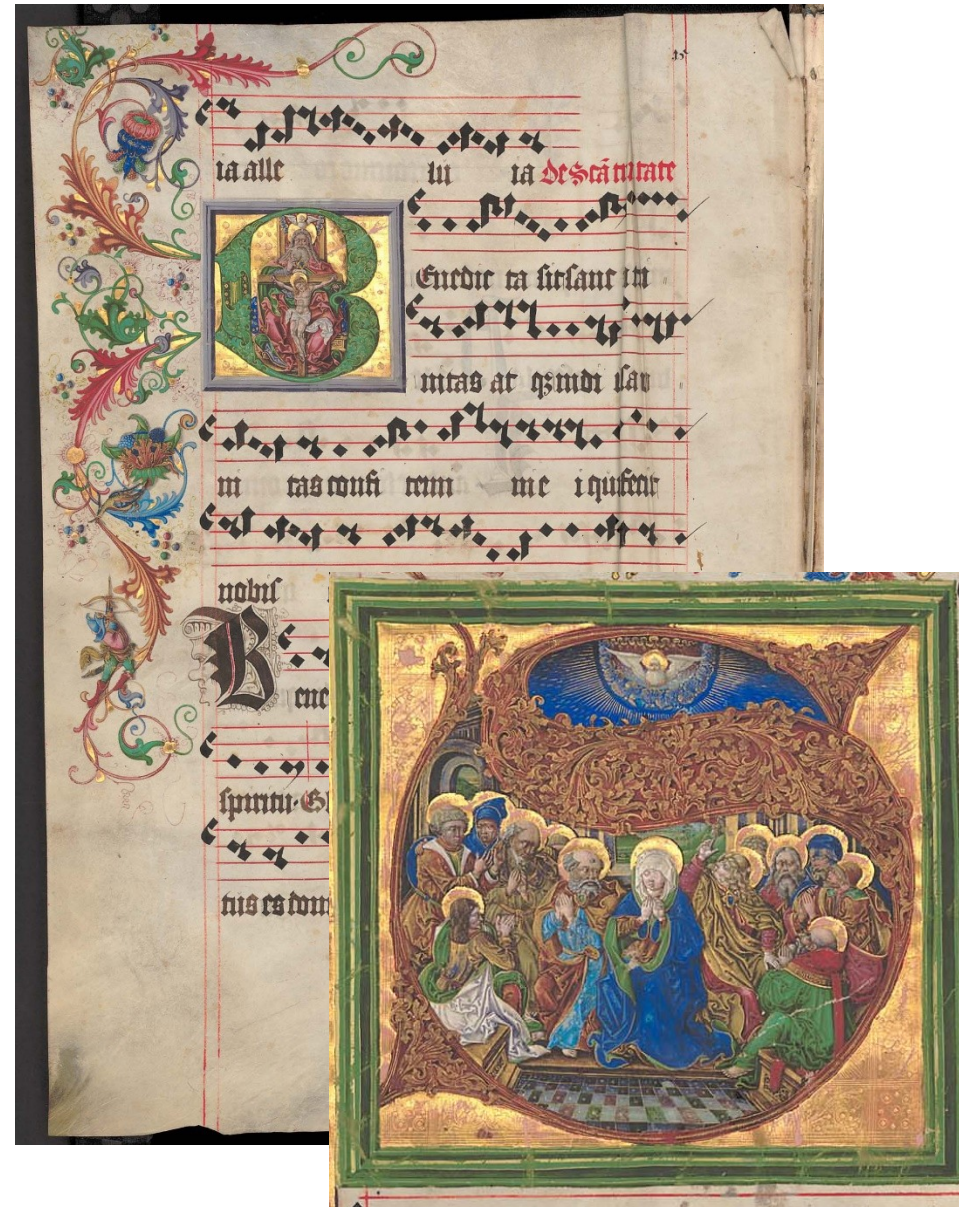 ia alle lui ia de Scā trītate
Enedic ta sit sanc tri
nitas at qȝ indi uau
ni tas confi temi me i quifecit
nobis
Bene
spiritu. Gl
tus es dom